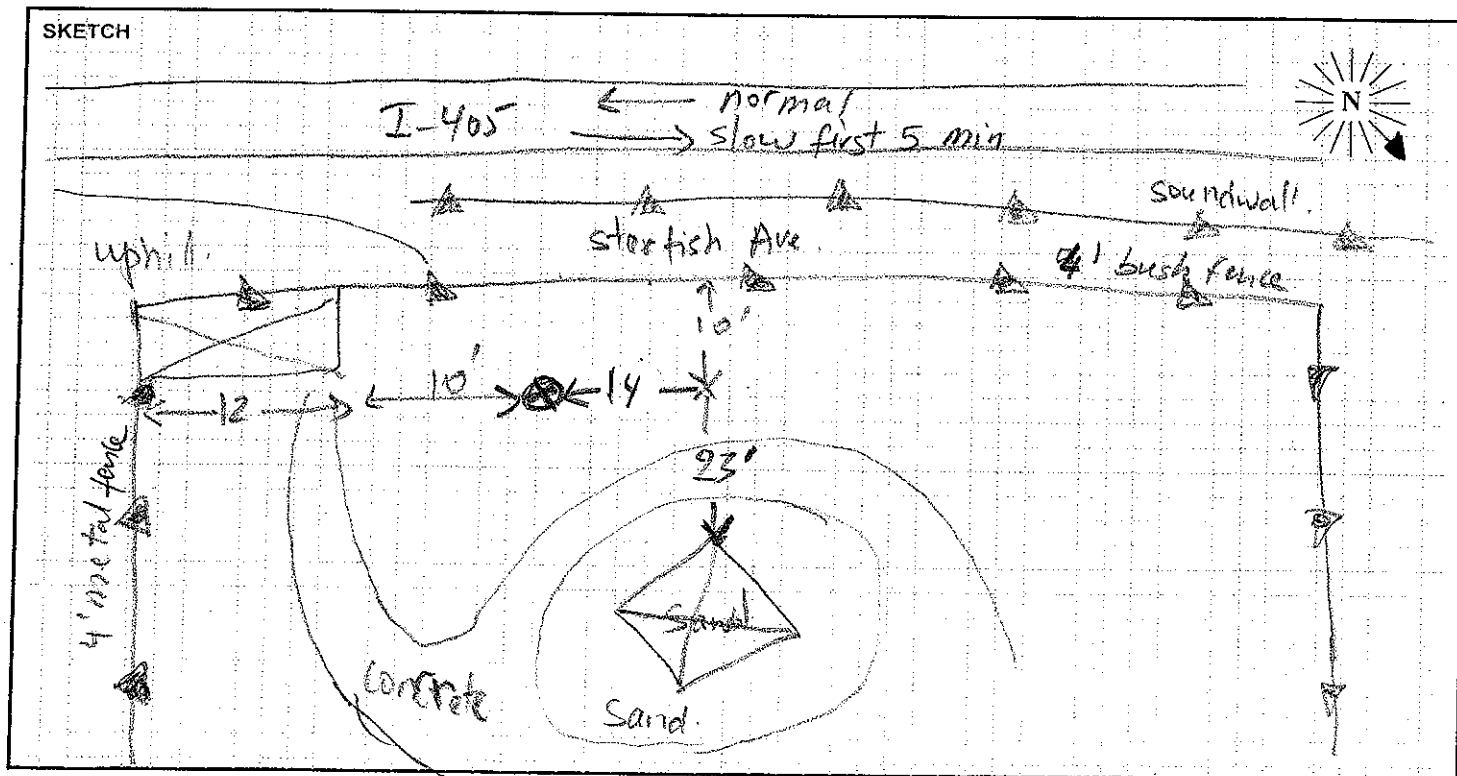 SKETCH
I-405
← normal
→ slow first 5 min
N
soundwall.
uphill.
starfish Ave.
4' bush fence
10'
12
10'
14'
23'
4' metal fence
Sand
concrete
Sand.